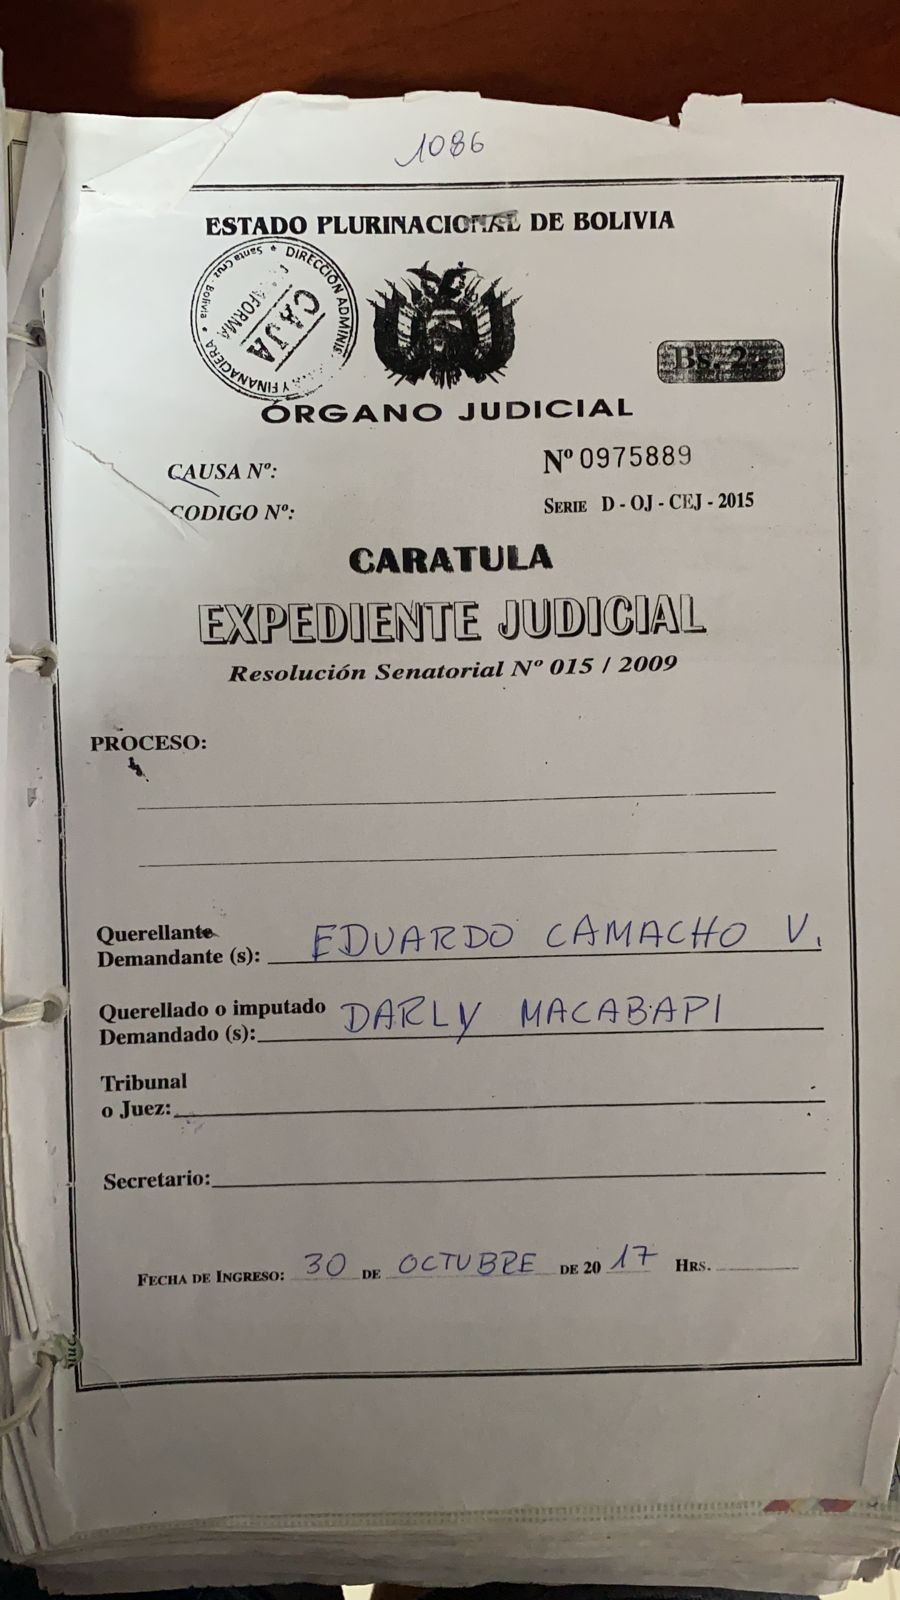 1086
ESTADO PLURINACIONAL DE BOLIVIA
DIRECCIÓN ADMINIS. Y FINANACIERA * Santa Cruz - Bolivia *
CAJA
Bs. 2
ÓRGANO JUDICIAL
CAUSA Nº:
Nº 0975889
CODIGO Nº:
SERIE D - OJ - CEJ - 2015
CARATULA
EXPEDIENTE JUDICIAL
Resolución Senatorial Nº 015 / 2009
PROCESO:
Querellante
Demandante (s): EDUARDO CAMACHO V.
Querellado o imputado
Demandado (s): DARLY MACABAPI
Tribunal
o Juez:
Secretario:
FECHA DE INGRESO: 30 DE OCTUBRE DE 2017 HRS.